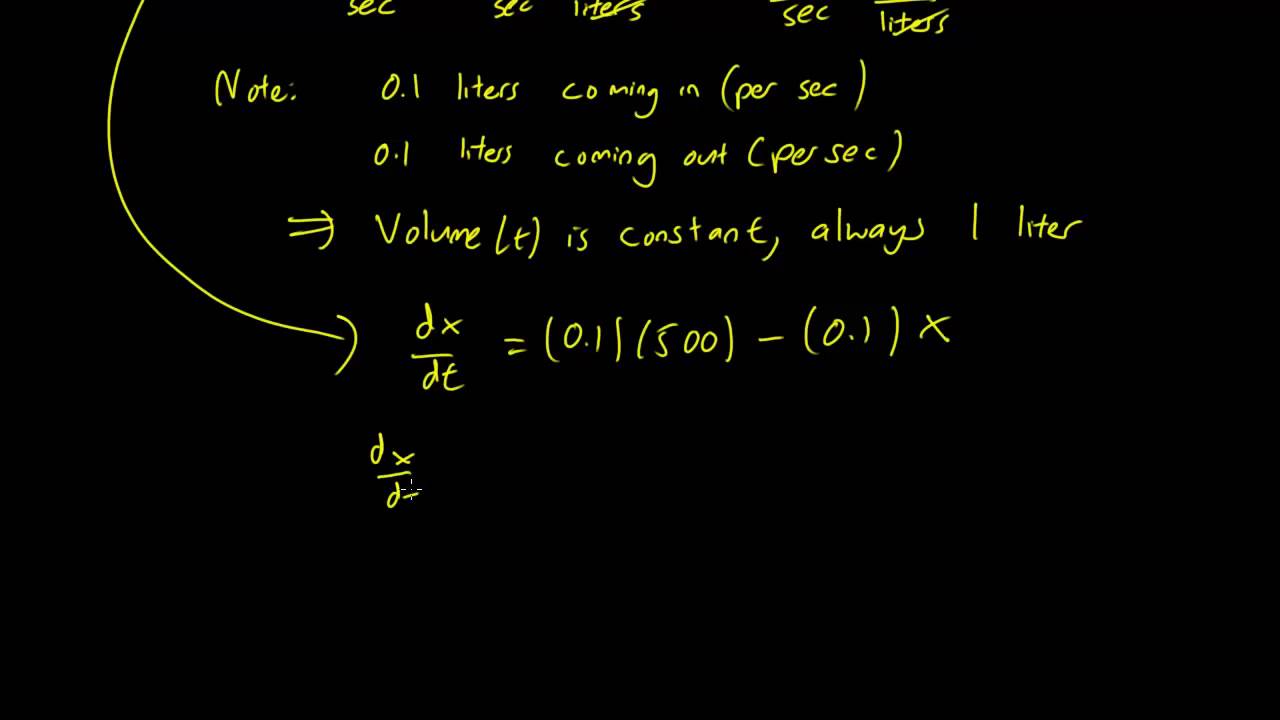 sec sec liters sec liters
Note: 0.1 liters coming in (per sec)
0.1 liters coming out (per sec)
⇒ Volume(t) is constant, always 1 liter
dx/dt = (0.1)(500) - (0.1) x
dx/d